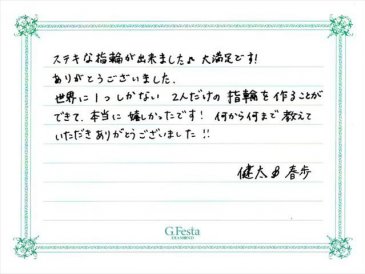 ステキな指輪が出来ました♪ 大満足です!
ありがとうございました。
世界に1つしかない 2人だけの 指輪を 作ることが
できて、本当に 嬉しかったです! 何から何まで 教えて
いただき ありがとうございました!!
健太 春歩
G.Festa
DIAMOND